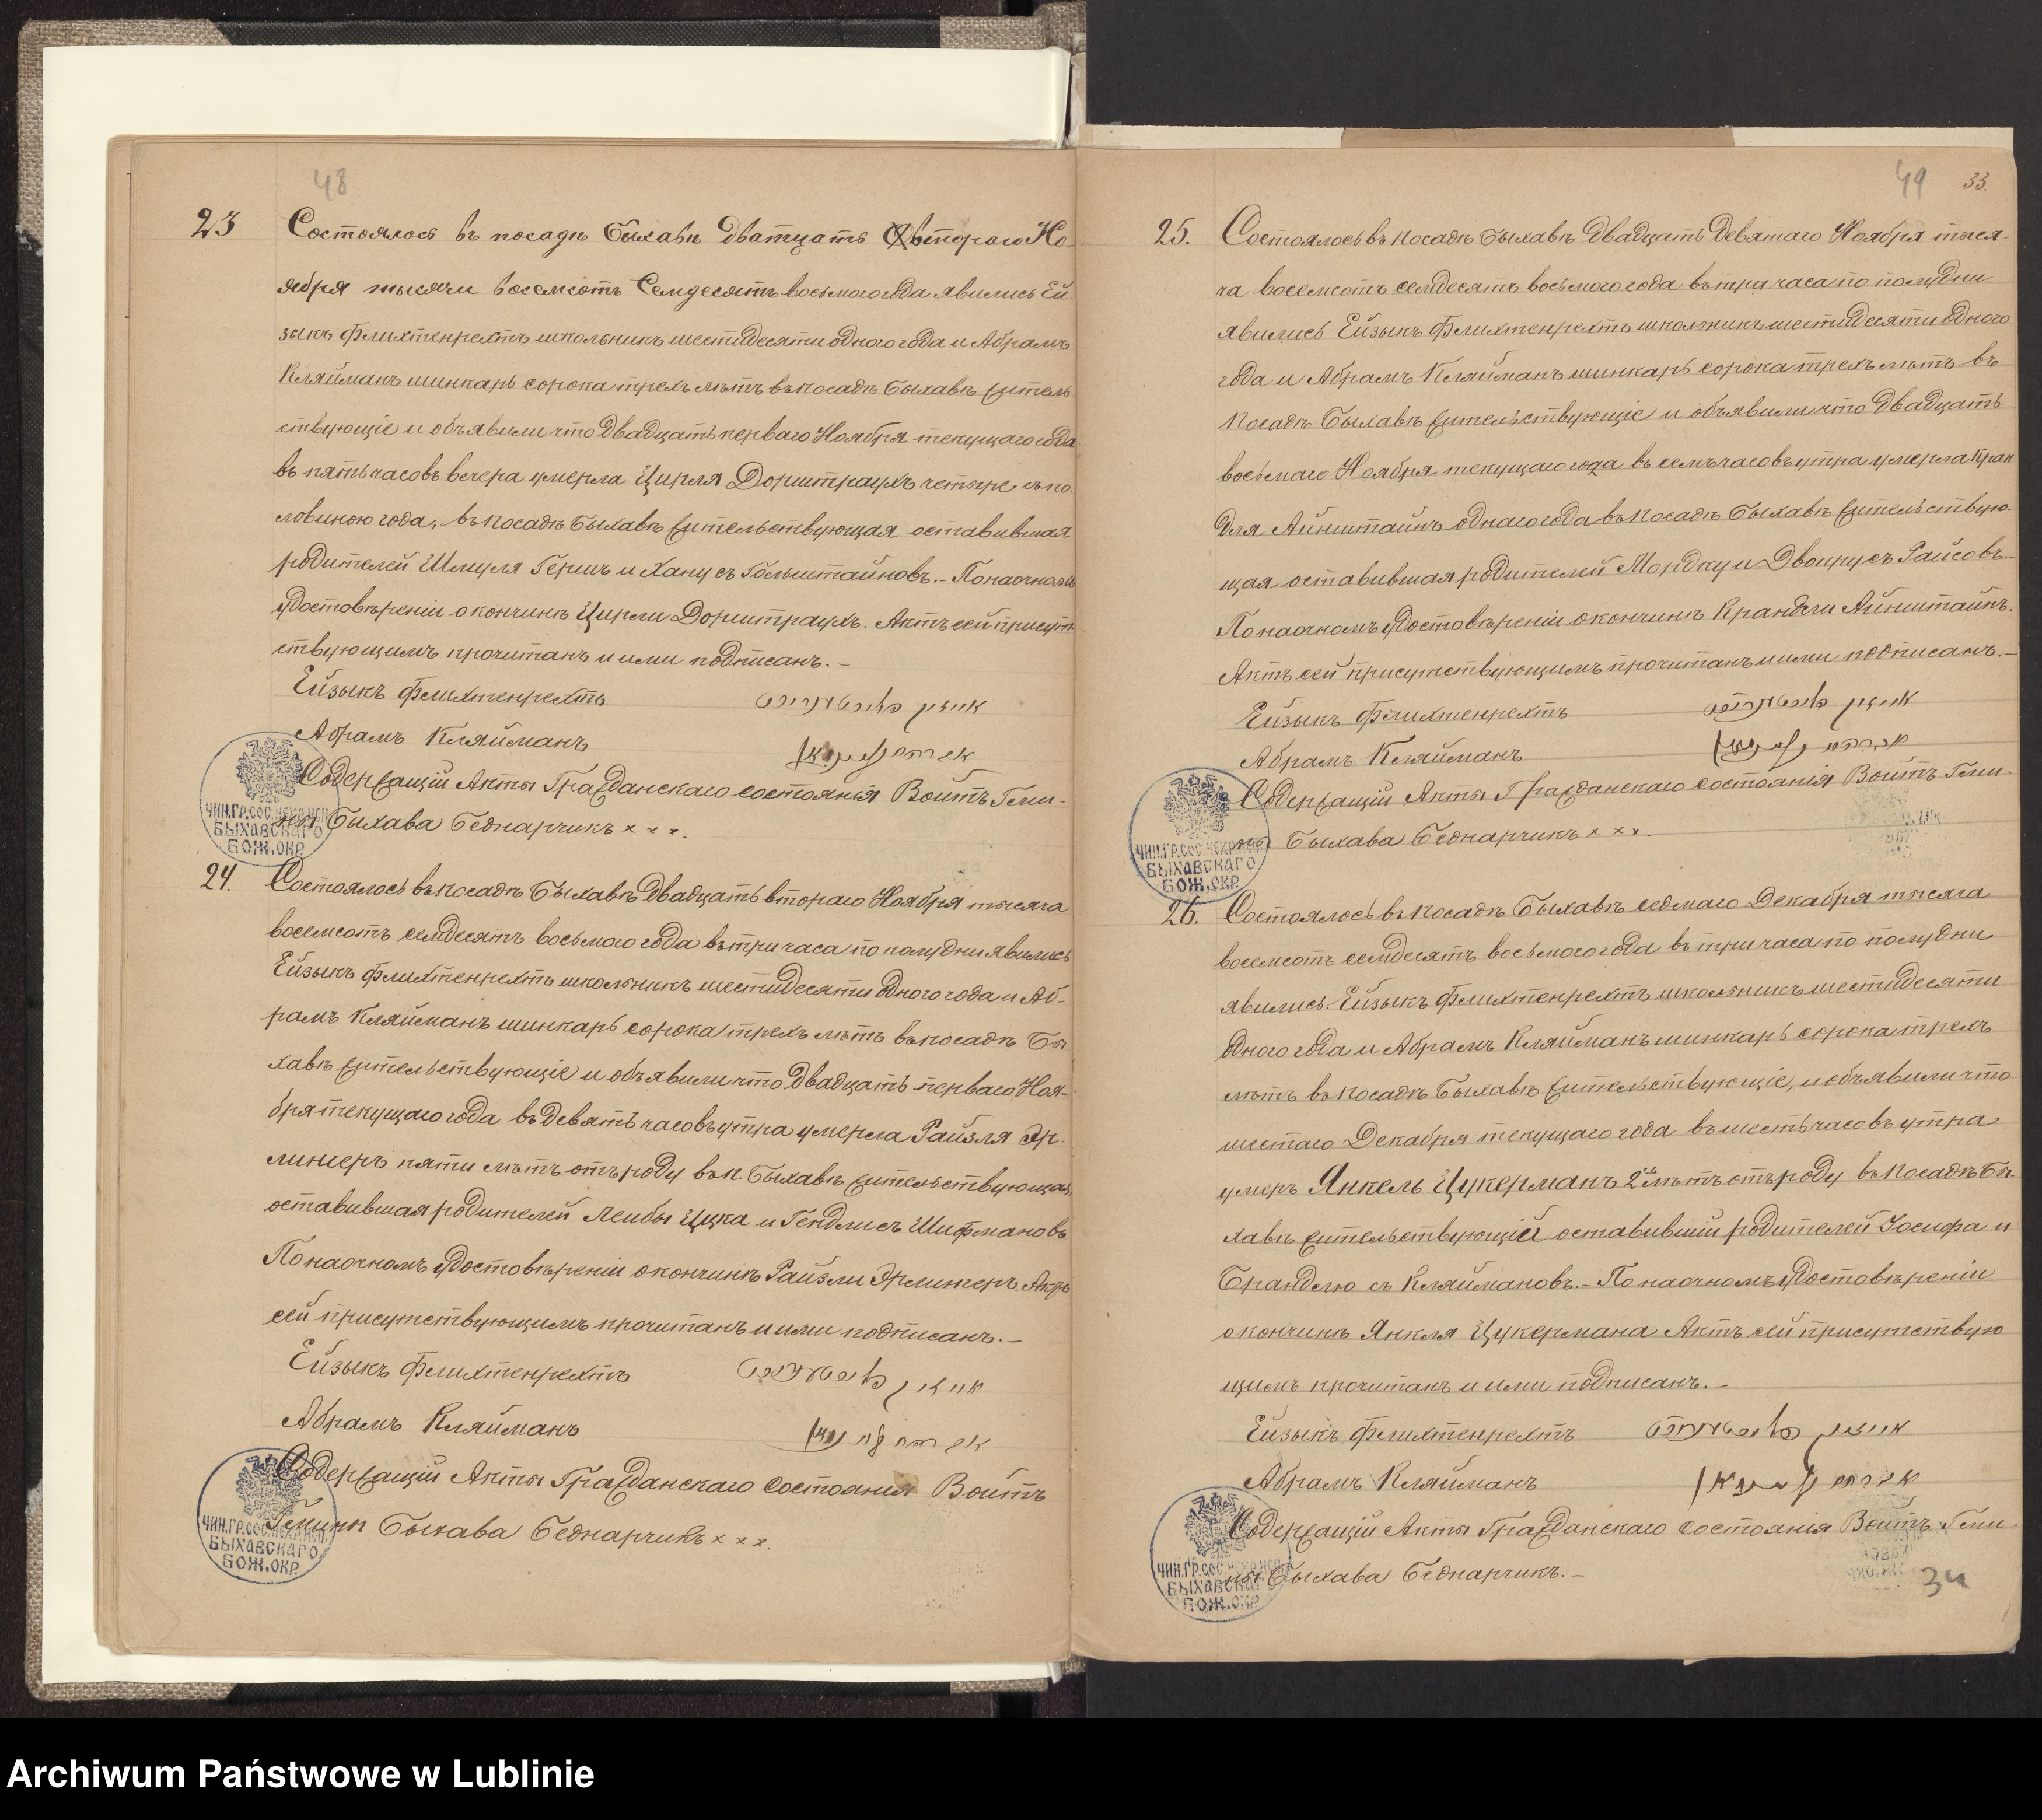 48
23
Состоялось въ посадѣ Быхавѣ дватцать втораго Но-
ября тысячи восемсотъ Семдесятъ восьмого года явились Ей
зыкъ Флихтенрехтъ школьникъ шестидесяти одного года и Абрамъ
Кляйманъ шинкарь сорока трехъ лѣтъ въ посадѣ Быхавѣ житель
ствующіе и объявили что двадцать перваго Ноября текущаго года
въ пять часовъ вечера умерла Цирля Дорштраухъ четыре съ по-
ловиною года, въ посадѣ Быхавѣ жительствующая оставившая
родителей Шмуля Гершъ и Хану съ Гольштайновъ.- По наочномъ
удостовѣреніи о кончинѣ Цирли Дорштраухъ. Актъ сей присут-
ствующимъ прочитанъ и ими подписанъ.-
Ейзыкъ Флихтенрехтъ
Абрамъ Кляйманъ
Содержащій Акты Гражданскаго состоянія Войтъ Гми-
ны Быхава Беднарчикъ х х х.
ЧИН.ГР.СОС.НЕХРИСТ.
БЫХАВСКАГО
БОЖ.ОКР.
24.
Состоялось въ посадѣ Быхавѣ двадцать втораго Ноября тысяча
восемсотъ семдесятъ восьмого года въ три часа по полудни явились
Ейзыкъ Флихтенрехтъ школьникъ шестидесяти одного года и Аб-
рамъ Кляйманъ шинкарь сорока трехъ лѣтъ въ посадѣ Бы
хавѣ жительствующіе и объявили что двадцать перваго Ноя-
бря текущаго года въ девять часовъ утра умерла Райзля Эр-
лихеръ пяти лѣтъ отъ роду въ п. Быхавѣ жительствующая,
оставившая родителей Лейбы Ицка и Гендли съ Шифмановъ
По наочномъ удостовѣреніи о кончинѣ Райзли Эрлихеръ. Актъ
сей присутствующимъ прочитанъ и ими подписанъ.-
Ейзыкъ Флихтенрехтъ
Абрамъ Кляйманъ
Содержащій Акты Гражданскаго состоянія Войтъ
Гмины Быхава Беднарчикъ х х х.
ЧИН.ГР.СОС.НЕХРИСТ.
БЫХАВСКАГО
БОЖ.ОКР.
49 33.
25.
Состоялось въ посадѣ Быхавѣ двадцать девятаго Ноября тыся-
ча восемсотъ семдесятъ восьмого года въ три часа по полудни
явились Ейзыкъ Флихтенрехтъ школьникъ шестидесяти одного
года и Абрамъ Кляйманъ шинкарь сорока трехъ лѣтъ въ
посадѣ Быхавѣ жительствующіе и объявили что двадцать
восьмаго Ноября текущаго года въ семь часовъ утра умерла Кран
для Айнштайнъ однаго года въ посадѣ Быхавѣ жительствую-
щая оставившая родителей Мордку и Двойру съ Райсовъ.-
По наочномъ удостовѣреніи о кончинѣ Крандли Айнштайнъ.
Актъ сей присутствующимъ прочитанъ и ими подписанъ.-
Ейзыкъ Флихтенрехтъ
Абрамъ Кляйманъ
Содержащій Акты Гражданскаго состоянія Войтъ Гми-
ны Быхава Беднарчикъ х х х.
ЧИН.ГР.СОС.НЕХРИСТ.
БЫХАВСКАГО
БОЖ.ОКР.
26.
Состоялось въ посадѣ Быхавѣ седмаго Декабря тысяча
восемсотъ семдесятъ восьмого года въ три часа по полудни
явились Ейзыкъ Флихтенрехтъ школьникъ шестидесяти
одного года и Абрамъ Кляйманъ шинкарь сорока трехъ
лѣтъ въ посадѣ Быхавѣ жительствующіе, и объявили что
шестаго Декабря текущаго года въ шесть часовъ утра
умеръ Янкель Цукерманъ 2хъ лѣтъ отъ роду въ посадѣ Бы
хавѣ жительствующій оставившій родителей Іосифа и
Брандлю съ Кляймановъ.- По наочномъ удостовѣреніи
о кончинѣ Янкля Цукермана Актъ сей присутствую
щимъ прочитанъ и ими подписанъ.-
Ейзыкъ Флихтенрехтъ
Абрамъ Кляйманъ
Содержащій Акты Гражданскаго состоянія Войтъ Гми-
ны Быхава Беднарчикъ.-
ЧИН.ГР.СОС.НЕХРИСТ.
БЫХАВСКАГО
БОЖ.ОКР.
34
Archiwum Państwowe w Lublinie